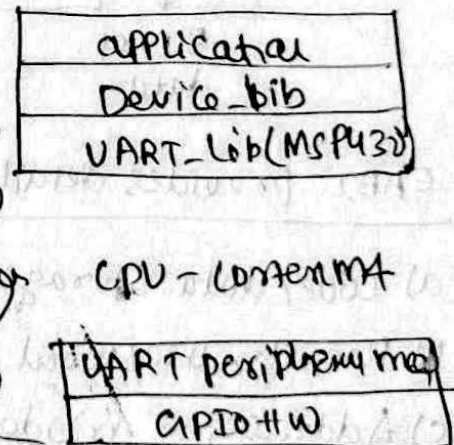 application
Device_bib
UART_Lib(MSP432)
CPU - Cortex m4
UART peripheral
GPIO HW